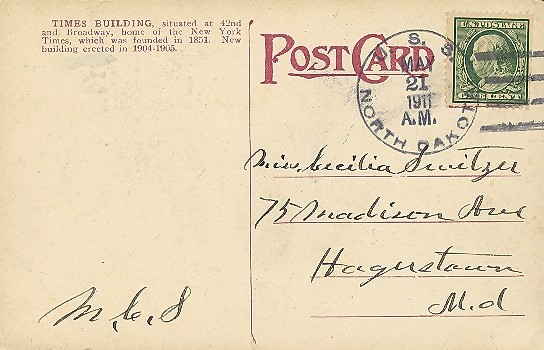 TIMES BUILDING, situated at 42nd
and Broadway, home of the New York
Times, which was founded in 1851. New
building erected in 1904-1905.
POST CARD
U.S.S.
MAY
21
1911
A.M.
NORTH DAKOTA
U.S. POSTAGE
ONE CENT
Miss Cecilia Switzer
75 Madison Ave
Hagerstown
M.d
M.C.S